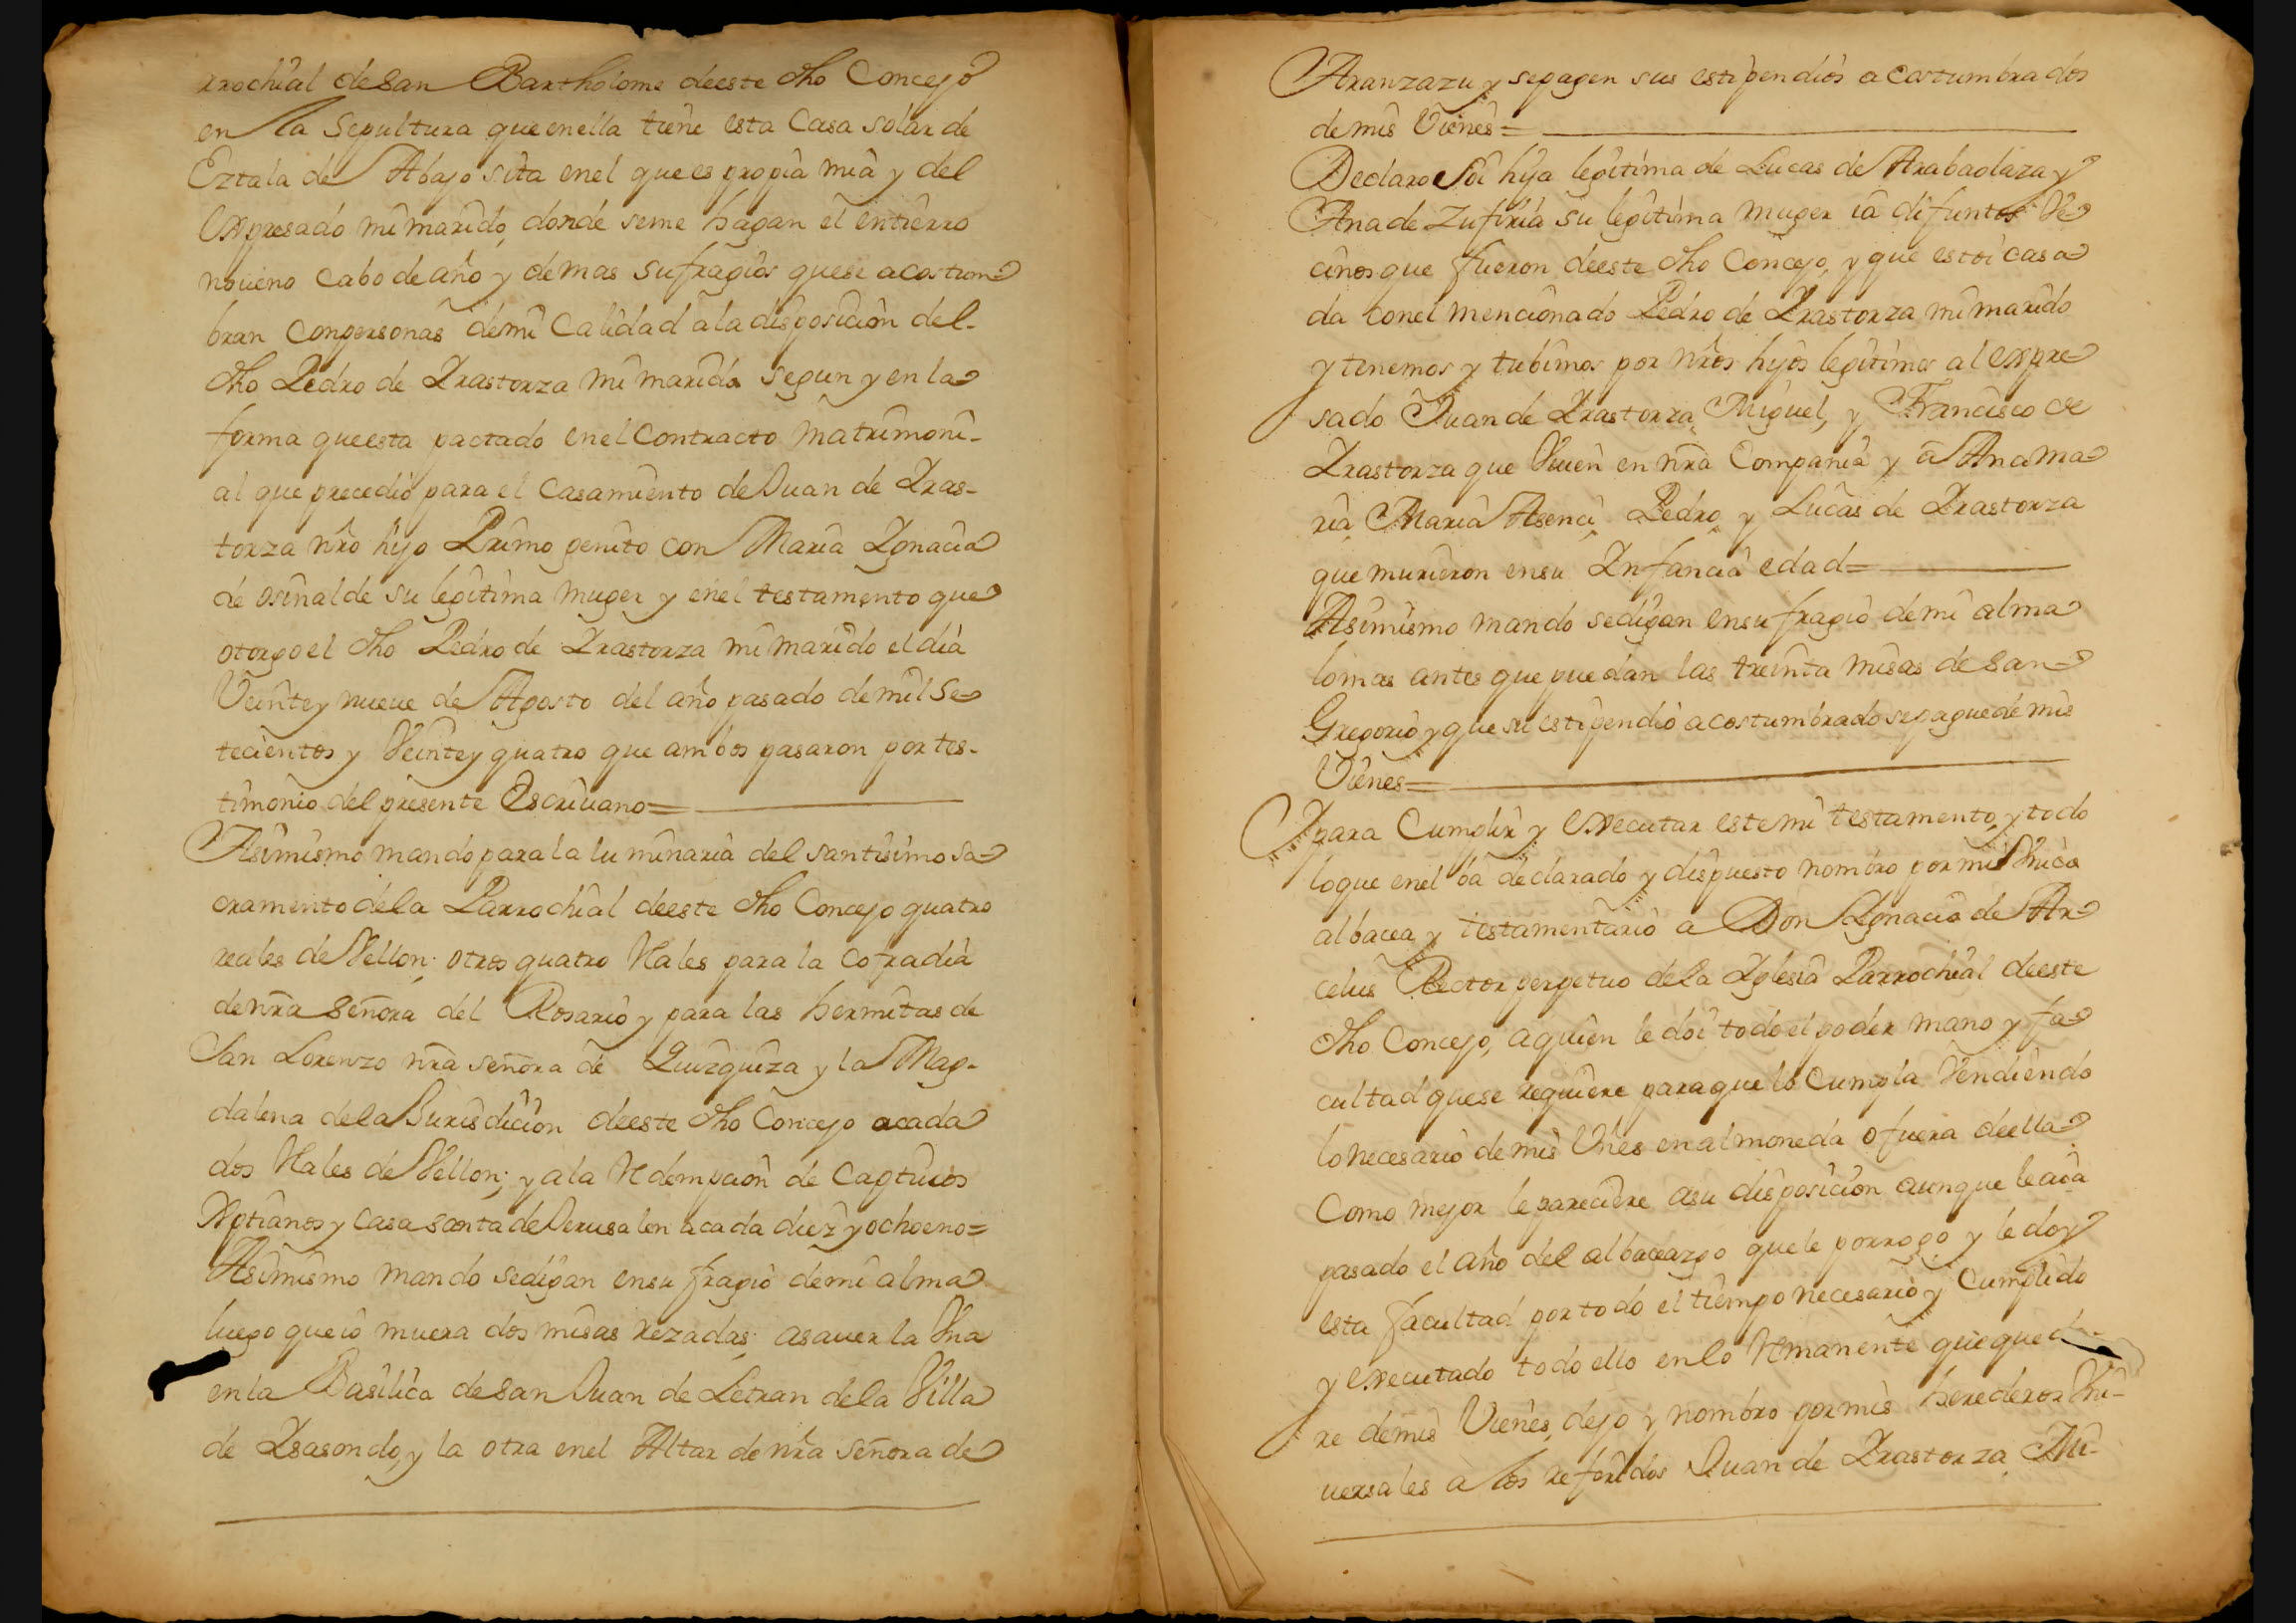 rrochial de San Bartholome deeste dho Concejo
en la Sepultura que enella tiene esta Casa solar de
Eztala de Abajo sita enel que es propia mia y del
Expresado mi marido, donde seme hagan el entierro
noueno Cabo de año y demas sufragios quese acostum
bran Conpersonas demi Calidad ala disposicion del
dho Pedro de Irastorza mi marido segun y en la
forma que esta pactado enel Contracto matrimoni-
al que precedio para el Casamiento de Juan de Iras-
torza nro hijo Primo genito con Maria Ignacia
de osinalde su legitima muger y enel testamento que
otorgo el dho Pedro de Irastorza mi marido el dia
Veinte y nueue de Agosto del año pasado de mil Se
tecientos y Veinte y quatro que ambos pasaron por tes-
timonio del presente Escriuano=
Asimismo mando para la luminaria del santisimo Sa
cramento dela Parrochial deeste dho Concejo quatro
reales de Vellon; otros quatro Rales para la Cofradia
de nra Señora del Rosario y para las hermitas de
San Lorenzo nra señora de Quizquiza y la Mag-
dalena dela Jurisdicion deeste dho Concejo acada
dos Rales de Vellon; y ala Redempcion de Captiuos
Xptianos y Casa santa de Jerusalen acada diez y ocheno=
Asimismo mando sedigan ensufragio demi alma
luego que io muera dos misas rezadas; asauer la Vna
en la Basilica de San Juan de Letran dela Villa
de Isasondo, y la otra enel Altar de nra Señora de
Aranzazu y sepagen sus estipendios acostumbrados
de mis Vienes=
Declaro soi hija legitima de Lucas de Arabaolaza y
Ana de Zufiria su legitima muger ia difuntos Ve
cinos que fueron deeste dho Concejo, y que estoi casa
da conel mencionado Pedro de Irastorza mi marido
y tenemos y tubimos por nros hijos legitimos al Expre
sado Juan de Irastorza, Miguel, y Francisco de
Irastorza que Viuen en nra Compania y a Ana Ma
ria, Maria Asenci, Pedro, y Lucas de Irastorza
que murieron ensu Infancia edad=
Asimismo mando sedigan ensufragio demi alma
lomas antes que puedan las treinta misas de San
Gregorio y que su estipendio acostumbrado sepague de mis
Vienes=
Ipara Cumplir y Executar este mi testamento, y todo
loque enel ba declarado y dispuesto nombro por mi Vnico
albacea y testamentario a Don Ignacio de Ar
celus Rector perpetuo dela Iglesia Parrochial deeste
dho Concejo, aquien le doi todo el poder mano y fa
cultad quese requiere para que lo Cumpla Vendiendo
lo necesario de mis Vnes en almoneda o fuera deella
Como mejor le pareciere asu disposicion aunque le aia
pasado el año del albaceazgo que le porrogo y le doy
esta facultad por todo el tiempo necesario y Cumplido
y Executado todo ello en lo Remanente que queda-
re demis Vienes, dejo y nombro por mis herederos Vni-
uersales à los referidos Juan de Irastorza, Mi-